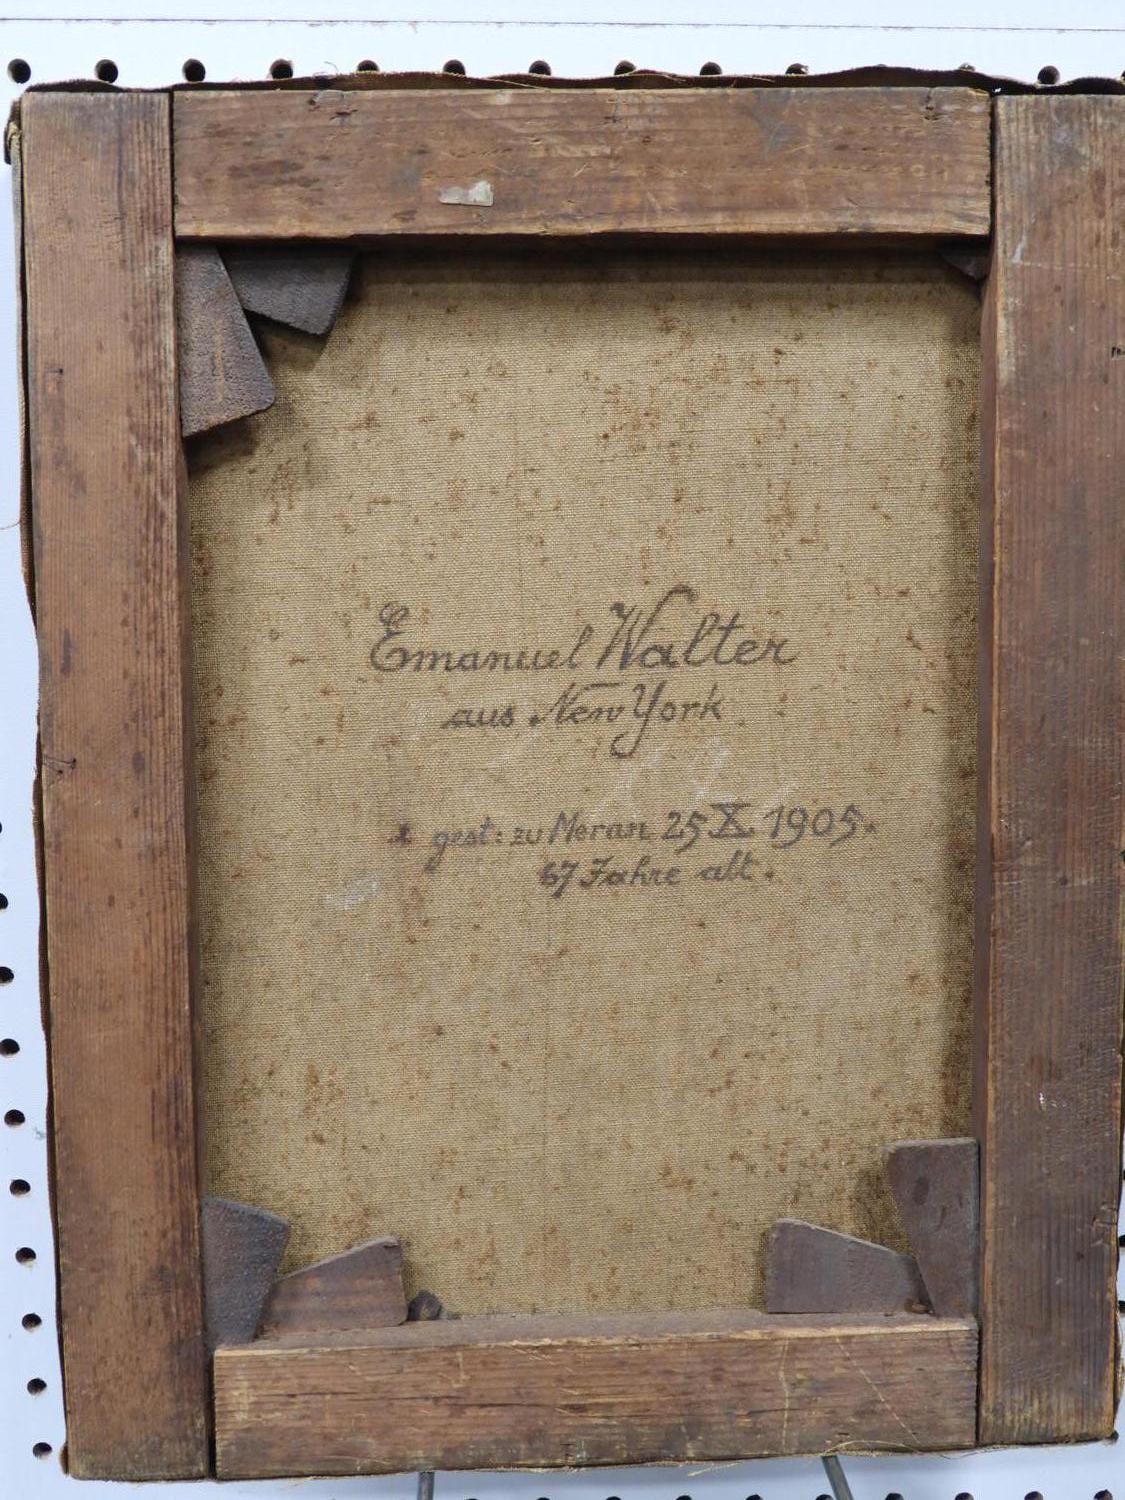 Emanuel Walter
aus New York
gest: zu Meran 25 X. 1905.
67 Jahre alt.